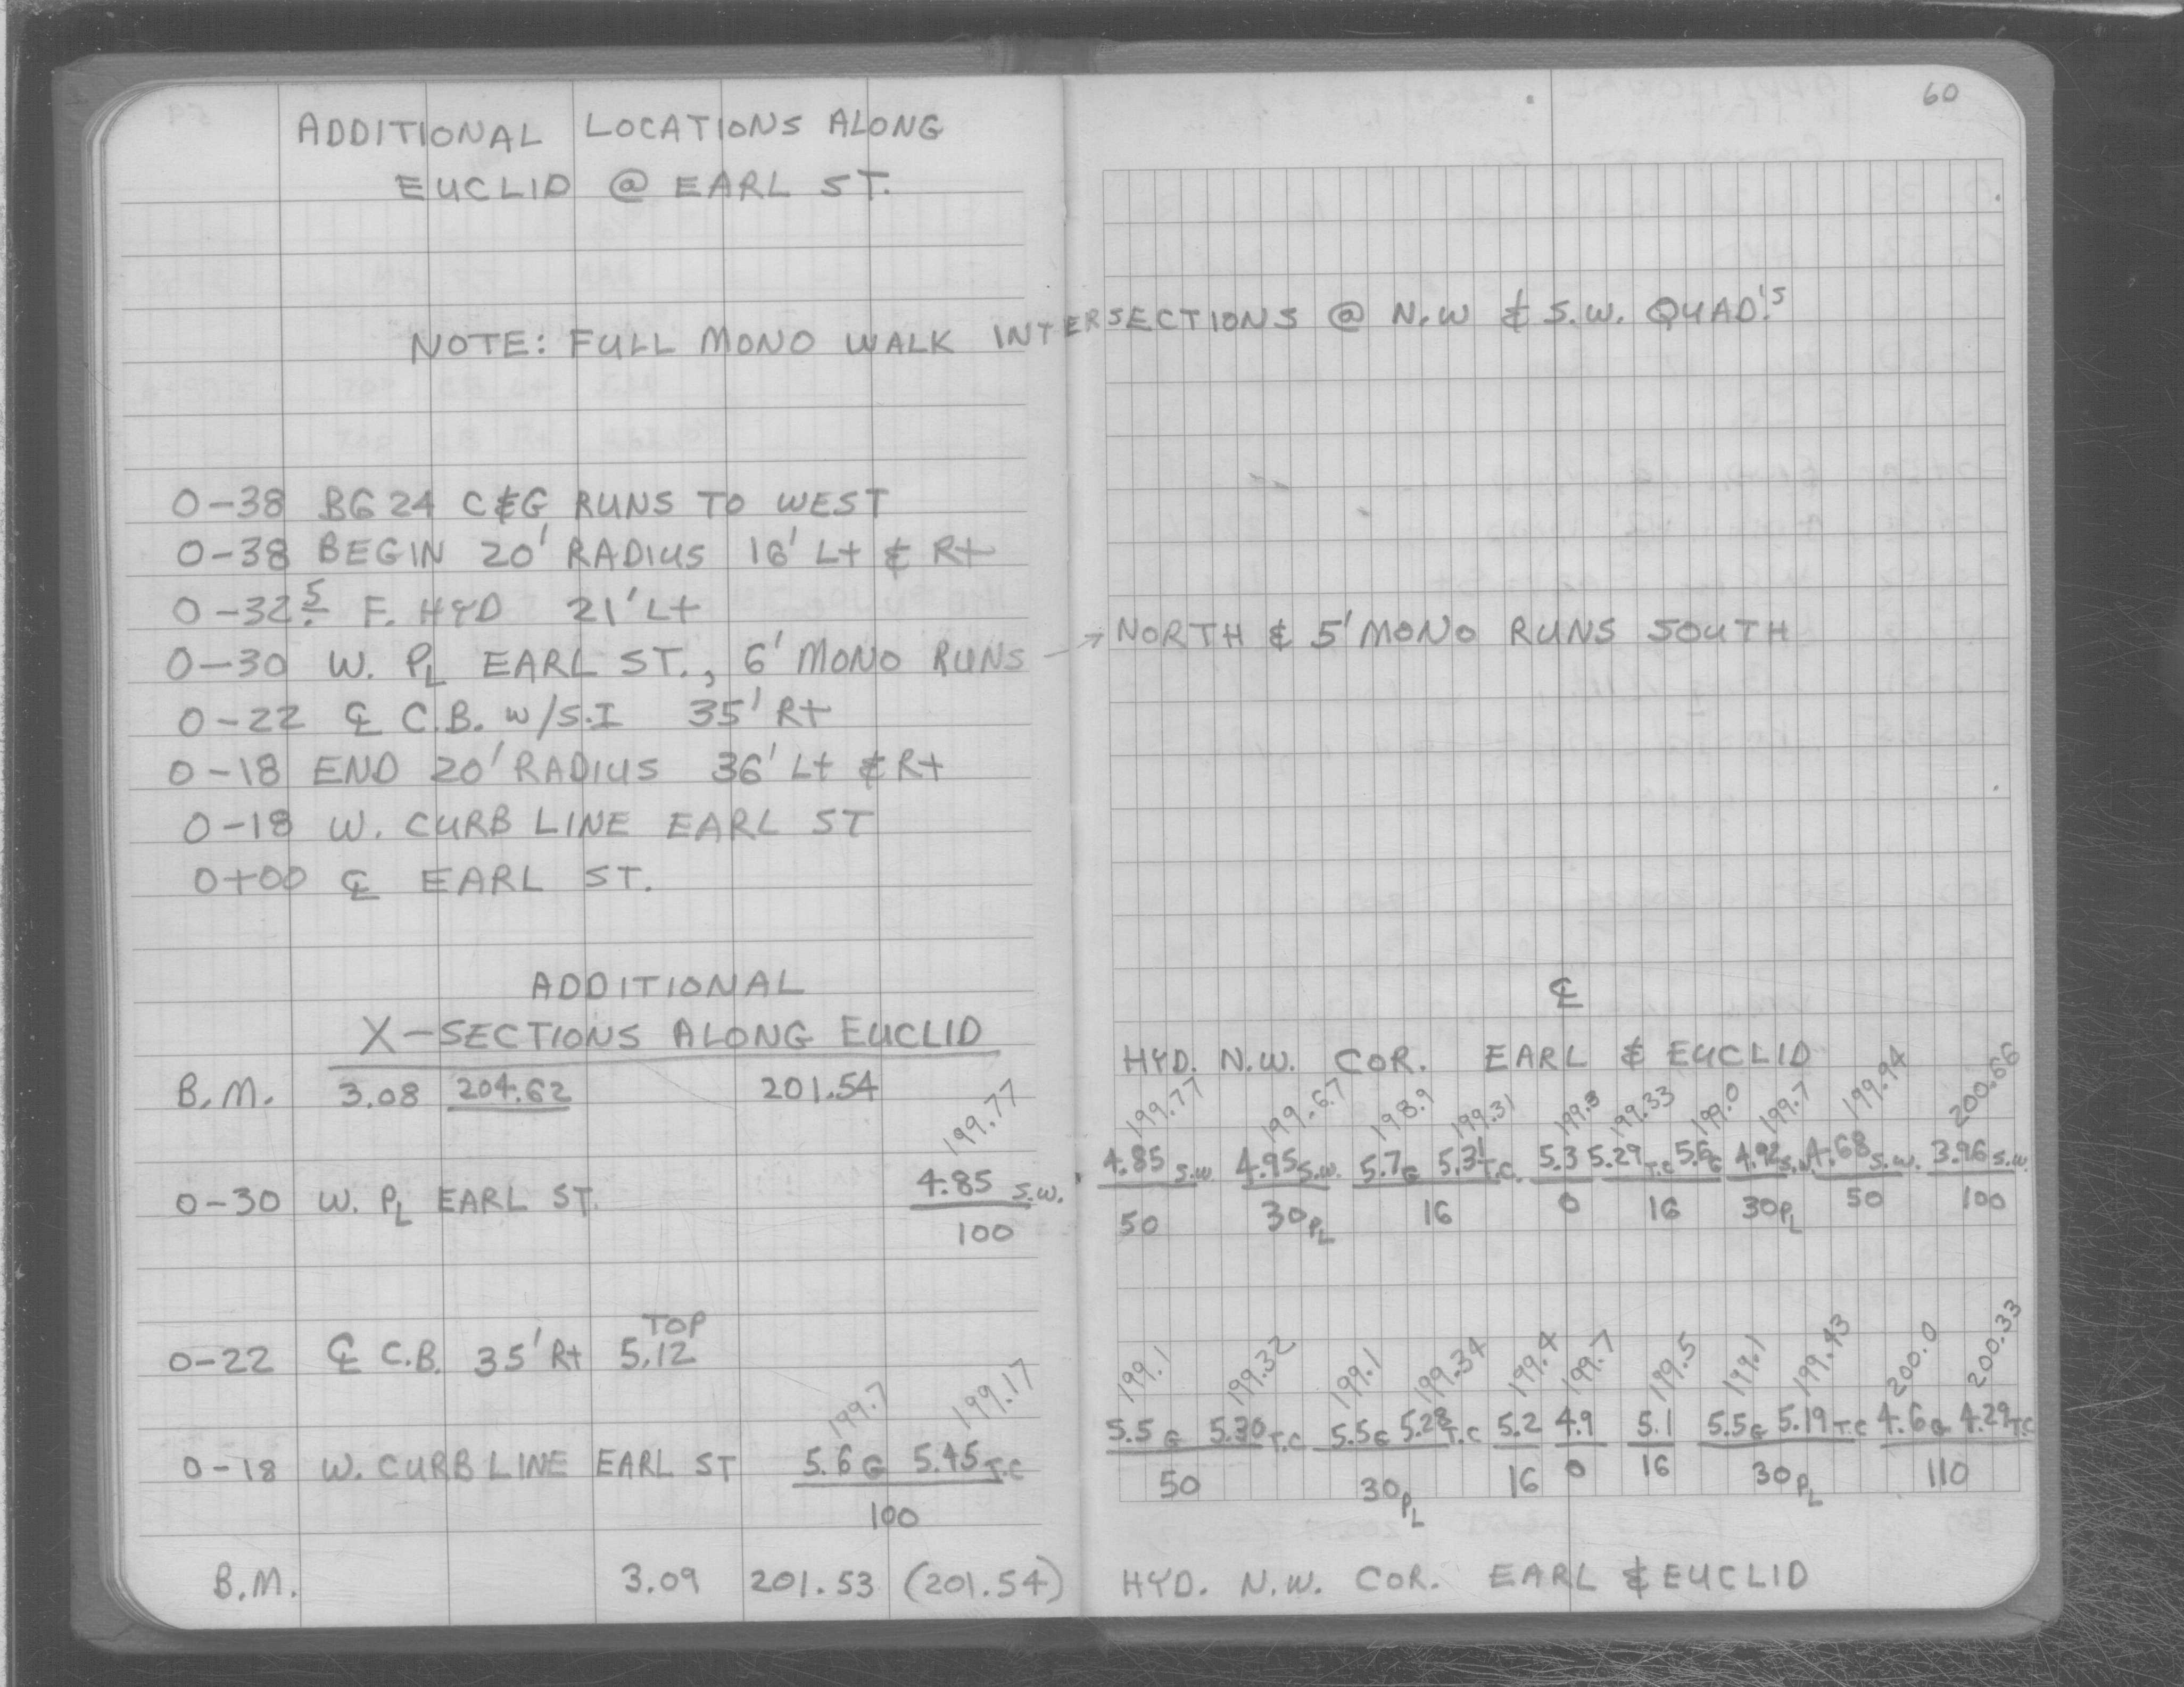 60
ADDITIONAL LOCATIONS ALONG
EUCLID @ EARL ST.
NOTE: FULL MONO WALK INTERSECTIONS @ N.W & S.W. QUAD.'S
0-38 BG 24 C&G RUNS TO WEST
0-38 BEGIN 20' RADIUS 16' Lt & Rt
0-32.5 F. HYD 21' Lt
0-30 W. PL EARL ST., 6' MONO RUNS → NORTH & 5' MONO RUNS SOUTH
0-22 ℄ C.B. w/S.I 35' Rt
0-18 END 20' RADIUS 36' Lt & Rt
0-18 W. CURB LINE EARL ST
0+00 ℄ EARL ST.
ADDITIONAL
℄
X-SECTIONS ALONG EUCLID
B.M. 3.08 204.62 201.54 HYD. N.W. COR. EARL & EUCLID
199.77 199.77 199.67 198.9 199.31 199.3 199.33 199.0 199.7 199.94 200.66
0-30 W. PL EARL ST. 4.85 S.W. 4.85 S.W. 4.95 S.W. 5.7 G 5.31 T.C. 5.3 5.29 T.C 5.6 G 4.92 S.W 4.68 S.W. 3.96 S.W.
100 50 30 PL 16 0 16 30 PL 50 100
TOP
0-22 ℄ C.B. 35' Rt 5.12
199.7 199.17 199.1 199.32 199.1 199.34 199.4 199.7 199.5 199.1 199.43 200.0 200.33
0-18 W. CURB LINE EARL ST 5.6 G 5.45 T.C 5.5 G 5.30 T.C 5.5 G 5.28 T.C 5.2 4.9 5.1 5.5 G 5.19 T.C 4.6 G 4.29 T.C
100 50 30 PL 16 0 16 30 PL 110
B.M. 3.09 201.53 (201.54) HYD. N.W. COR. EARL & EUCLID